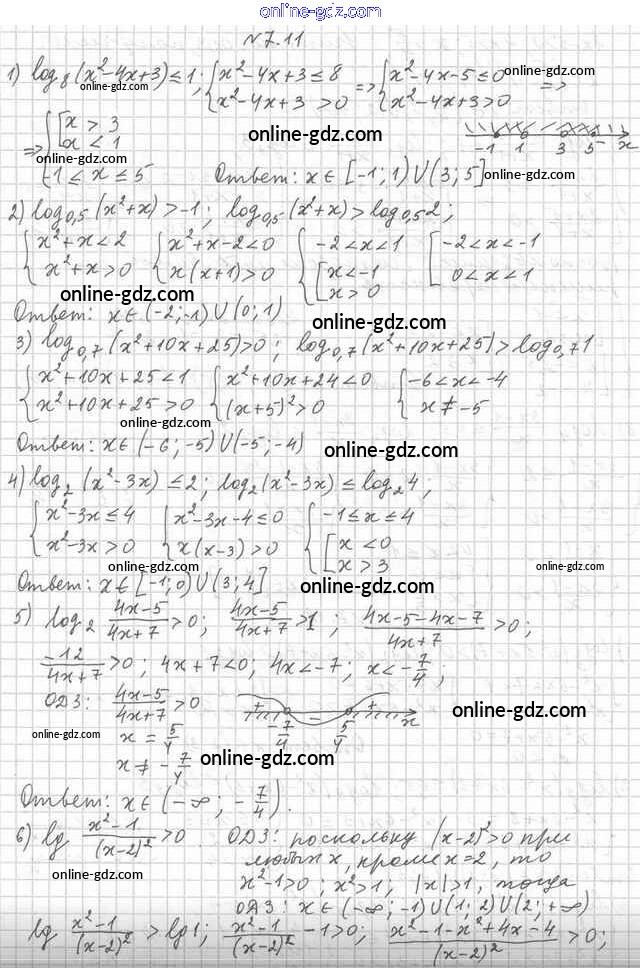 online-gdz.com
№7.11
1) log₈(x²-4x+3)≤1; {x²-4x+3≤8 => {x²-4x-5≤0 =>
online-gdz.com online-gdz.com
{x²-4x+3>0 {x²-4x+3>0
online-gdz.com
=> {[x>3
[x<1 -1 1 3 5 x
online-gdz.com
-1≤x≤5 Ответ: x∈[-1;1)∪(3;5]
online-gdz.com
2) log₀,₅(x²+x)>-1; log₀,₅(x²+x)>log₀,₅2;
{x²+x<2 {x²+x-2<0 {-2<x<1 [-2<x<-1
{x²+x>0 {x(x+1)>0 {[x<-1 [0<x<1
[x>0
online-gdz.com
Ответ: x∈(-2;-1)∪(0;1)
online-gdz.com
3) log₀,₇(x²+10x+25)>0; log₀,₇(x²+10x+25)>log₀,₇1
{x²+10x+25<1 {x²+10x+24<0 {-6<x<-4
{x²+10x+25>0 {(x+5)²>0 {x≠-5
online-gdz.com
Ответ: x∈(-6;-5)∪(-5;-4)
online-gdz.com
4) log₂(x²-3x)≤2; log₂(x²-3x)≤log₂4;
{x²-3x≤4 {x²-3x-4≤0 {-1≤x≤4
{x²-3x>0 {x(x-3)>0 {[x<0
[x>3
online-gdz.com
Ответ: x∈[-1;0)∪(3;4]
online-gdz.com
5) log₂ (4x-5)/(4x+7)>0; (4x-5)/(4x+7)>1; (4x-5-4x-7)/(4x+7)>0;
-12/(4x+7)>0; 4x+7<0; 4x<-7; x<-7/4;
ОДЗ: (4x-5)/(4x+7)>0 + - + x
online-gdz.com
x=5/4 -7/4 5/4
online-gdz.com
x≠-7/4
online-gdz.com
Ответ: x∈(-∞;-7/4).
6) lg (x²-1)/(x-2)²>0 ОДЗ: поскольку (x-2)²>0 при
любых x, кроме x=2, то
online-gdz.com
x²-1>0; x²>1, |x|>1, тогда
ОДЗ: x∈(-∞;-1)∪(1;2)∪(2;+∞)
lg (x²-1)/(x-2)²>lg1; (x²-1)/(x-2)²-1>0; (x²-1-x²+4x-4)/(x-2)²>0;